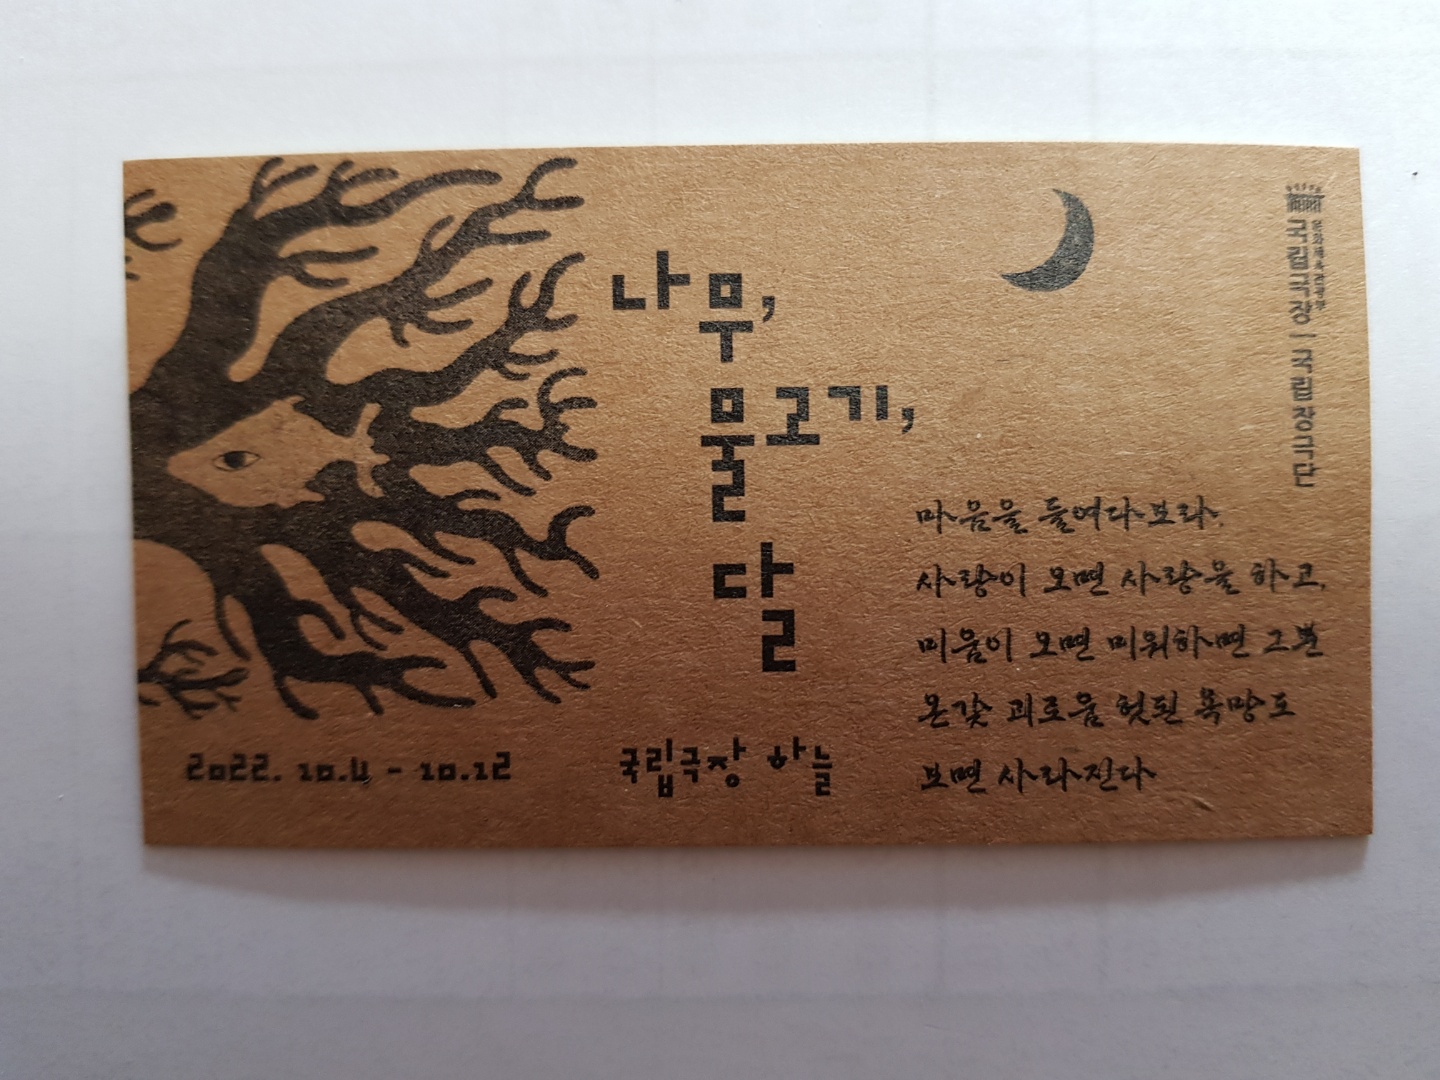 나무,
물고기,
달
2022. 10.4 - 10.12
국립극장 하늘
마음을 들여다보라.
사랑이 오면 사랑을 하고,
미움이 오면 미워하면 그뿐
온갖 괴로움 헛된 욕망도
보면 사라진다
문화체육관광부
국립극장 | 국립창극단